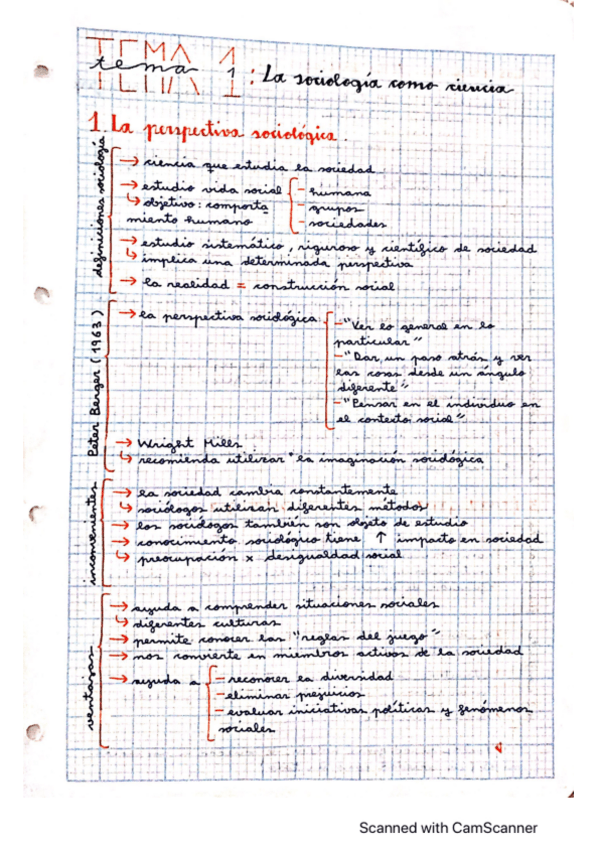 TEMA 1
tema 1: La sociología como ciencia
1. La perspectiva sociológica.
definiciones sociología
→ ciencia que estudia la sociedad
→ estudio vida social - humana
↳ objetivo: comporta - grupos
miento humano - sociedades
→ estudio sistemático, riguroso y científico de sociedad
↳ implica una determinada perspectiva
→ la realidad = construcción social
Peter Berger (1963)
→ la perspectiva sociológica - "Ver lo general en lo
particular"
- "Dar un paso atrás y ver
las cosas desde un ángulo
diferente"
- "Pensar en el individuo en
el contexto social"
→ Wright Mills
↳ recomienda utilizar la imaginación sociológica
inconvenientes
→ la sociedad cambia constantemente
↳ sociólogos utilizan diferentes métodos
→ los sociólogos también son objeto de estudio
→ conocimiento sociológico tiene ↑ impacto en sociedad
↳ preocupación x desigualdad social
ventajas
→ ayuda a comprender situaciones sociales
↳ diferentes culturas
→ permite conocer las "reglas del juego"
→ nos convierte en miembros activos de la sociedad
→ ayuda a - reconocer la diversidad
- eliminar prejuicios
- evaluar iniciativas políticas y fenómenos
sociales
Scanned with CamScanner